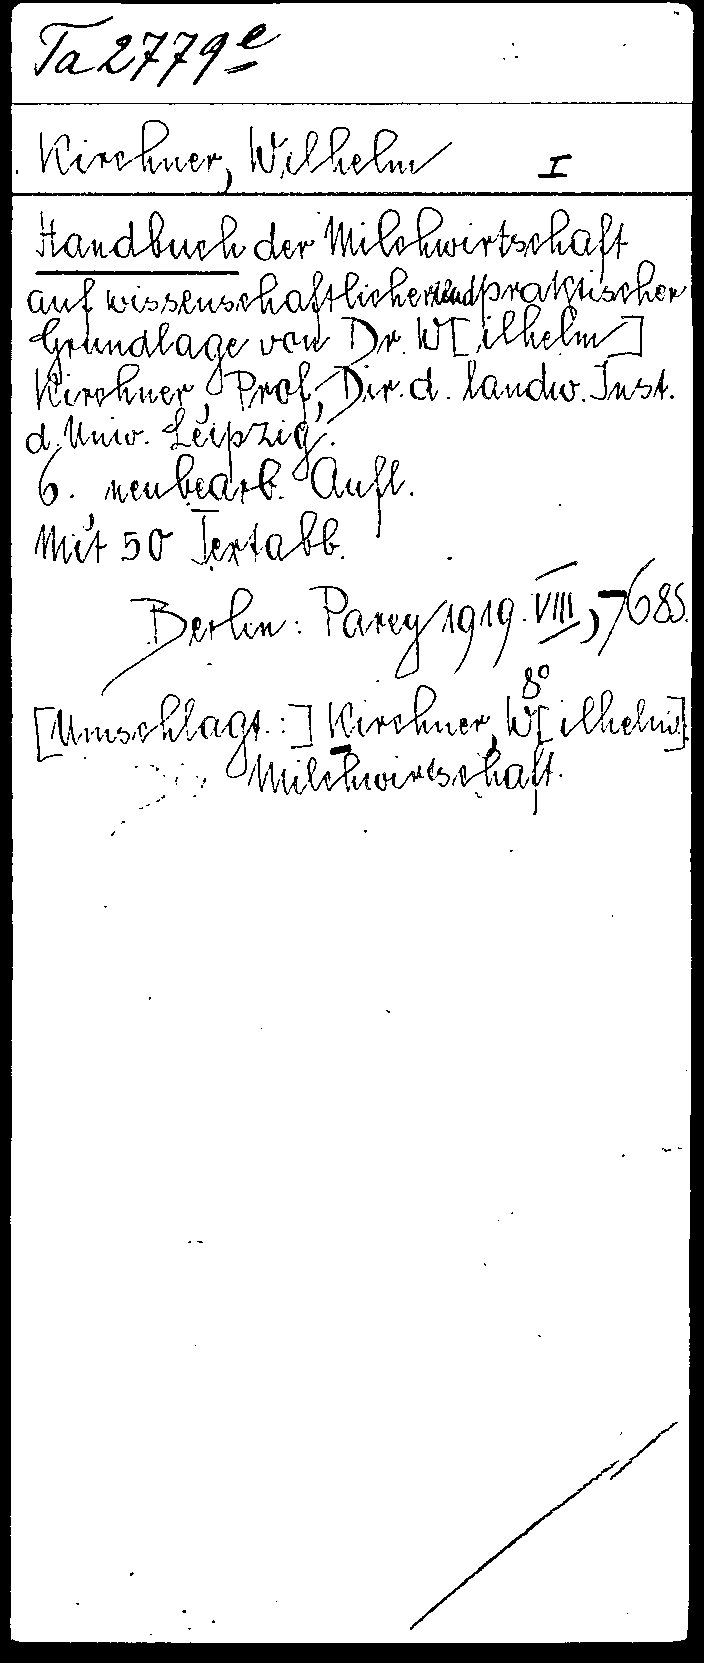 Ta 2779e
Kirchner, Wilhelm I
Handbuch der Milchwirtschaft
auf wissenschaftlicher und praktischer
Grundlage von Dr. W[ilhelm]
Kirchner, Prof., Dir. d. landw. Inst.
d. Univ. Leipzig.
6., neubearb. Aufl.
Mit 50 Textabb.
Berlin: Parey 1919. VIII, 768 S.
8°
[Umschlagt.:] Kirchner, W[ilhelm]
Milchwirtschaft.